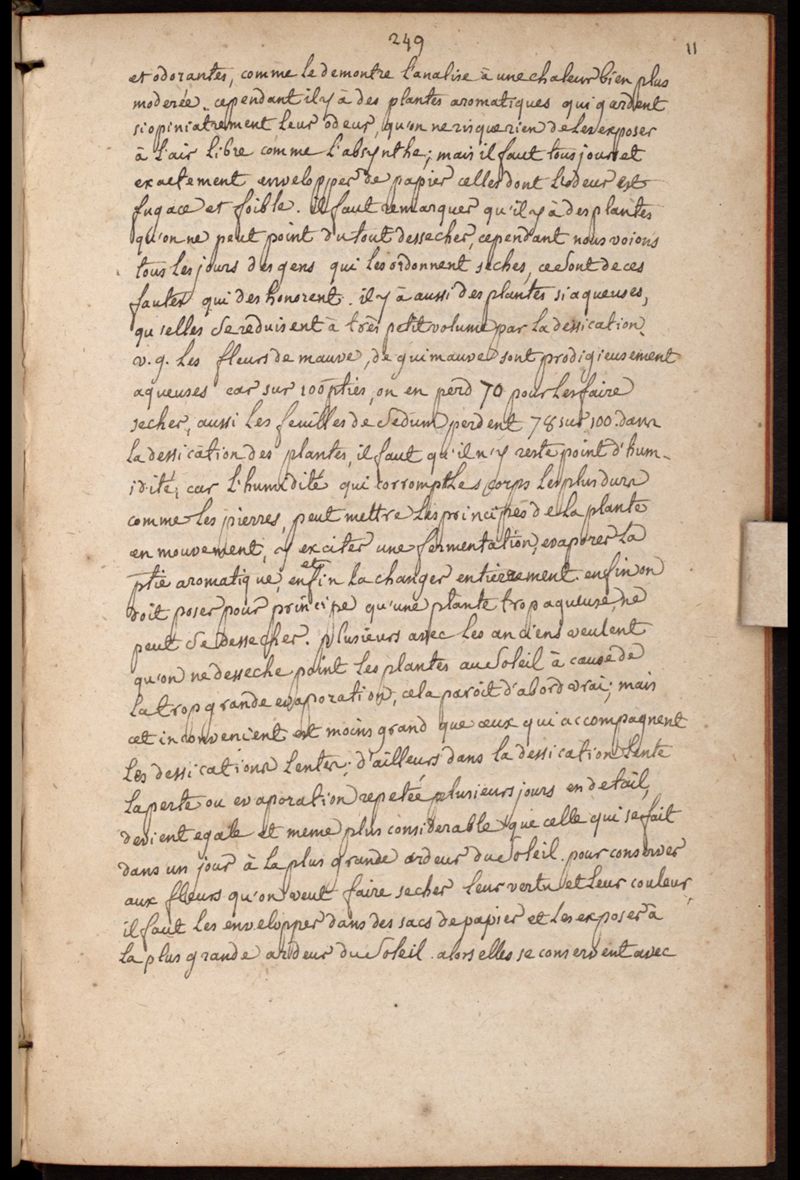 249
11
et odorantes, comme le demontre l'analise à une chaleur bien plus
moderée. cependant il y à des plantes aromatiques qui gardent
si opiniatrement leur odeur, qu'on ne risque rien de les exposer
à l'air libre comme l'absynthe; mais il faut tousjours et
exactement envelopper de papier celles dont l'odeur est
fugace et foible. il faut remarquer qu'il y à des plantes
qu'on ne peut point du tout dessecher, cependant nous voions
tous les jours des gens qui les ordonnent seches, ce sont de ces
fautes qui deshonorent. il y à aussi des plantes si aqueuses,
qu'elles se reduisent à très petit volume par la dessication.
v. g. les fleurs de mauve, de guimauve sont prodigieusement
aqueuses car sur 100 pties, on en perd 70 pour les faire
secher, aussi les feuilles de sedum perdent 78 sur 100. dans
la dessication des plantes, il faut qu'il n'y reste point d'hum-
idité; car l'humidité qui corrompt les corps les plus durs
comme les pierres, peut mettre les principes de la plante
en mouvement, y exciter une fermentation, evaporer la
ptie aromatique, et enfin la changer entierement. enfin on
doit poser pour principe qu'une plante trop aqueuse, ne
peut se dessecher. plusieurs avec les anciens veulent
qu'on ne desseche point les plantes au soleil à cause de
la trop grande evaporation, cela paroit d'abord vrai; mais
cet inconvenient est moins grand que ceux qui accompagnent
les dessications lentes; d'ailleurs dans la dessication lente
la perte ou evaporation repetée plusieurs jours en detail,
devient egale et meme plus considerable que celle qui se fait
dans un jour à la plus grande ardeur du soleil. pour conserver
aux fleurs qu'on veut faire secher leur vertu et leur couleur,
il faut les envelopper dans des sacs de papier et les exposer à
la plus grande ardeur du soleil. alors elles se conservent avec